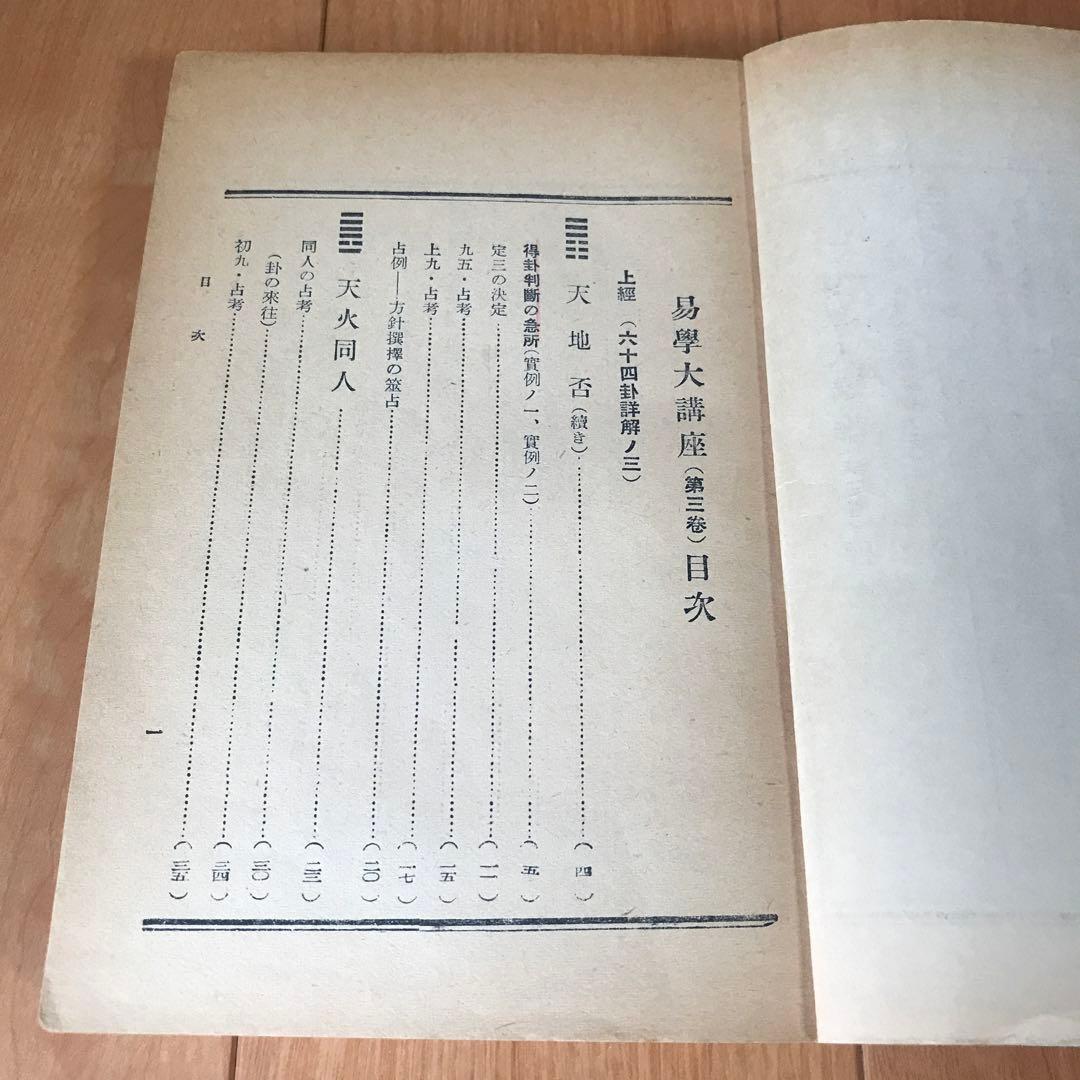 易學大講座(第三卷)目次
上經(六十四卦詳解ノ三)
䷋ 天地否(續き)……(四)
得卦判斷の急所(實例ノ一、實例ノ二)……(五)
定三の決定……(一一)
九五・占考……(一五)
上九・占考……(一七)
占例――方針撰擇の筮占……(二〇)
䷌ 天火同人……(二三)
同人の占考……(三〇)
(卦の來往)……(三四)
初九・占考……(三五)
目次
一